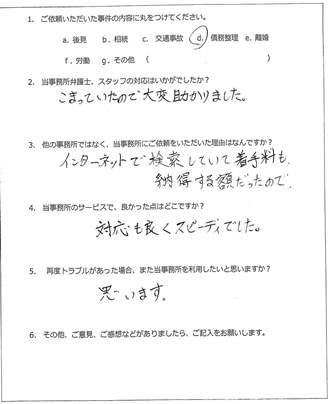 1. ご依頼いただいた事件の内容に丸をつけてください。
a. 後見 b. 相続 c. 交通事故 d. 債務整理 e. 離婚
f. 労働 g. その他 ( )
2. 当事務所弁護士、スタッフの対応はいかがでしたか？
こまっていたので大変助かりました。
3. 他の事務所ではなく、当事務所にご依頼をいただいた理由はなんですか？
インターネットで検索していて着手料も、
納得する額だったので、
4. 当事務所のサービスで、良かった点はどこですか？
対応も良くスピーディでした。
5. 再度トラブルがあった場合、また当事務所を利用したいと思いますか？
思います。
6. その他、ご意見、ご感想などがありましたら、ご記入をお願いします。